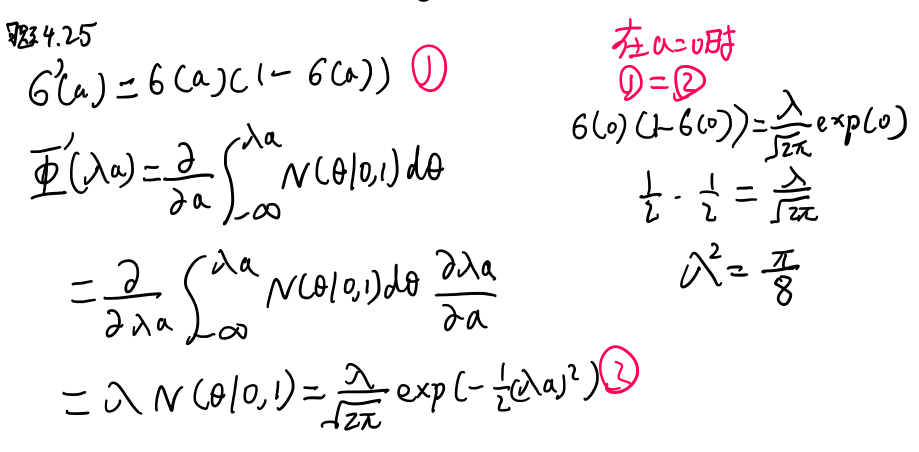 题4.25
σ'(a) = σ(a)(1-σ(a)) ①
Φ'(λa) = ∂/∂a ∫_{-∞}^{λa} N(θ|0,1)dθ
= ∂/∂λa ∫_{-∞}^{λa} N(θ|0,1)dθ ∂λa/∂a
= λ N(θ|0,1) = λ/√2π exp(-1/2(λa)²) ②
在a=0时
①=②
σ(0)(1-σ(0)) = λ/√2π exp(0)
1/2 · 1/2 = λ/√2π
λ² = π/8